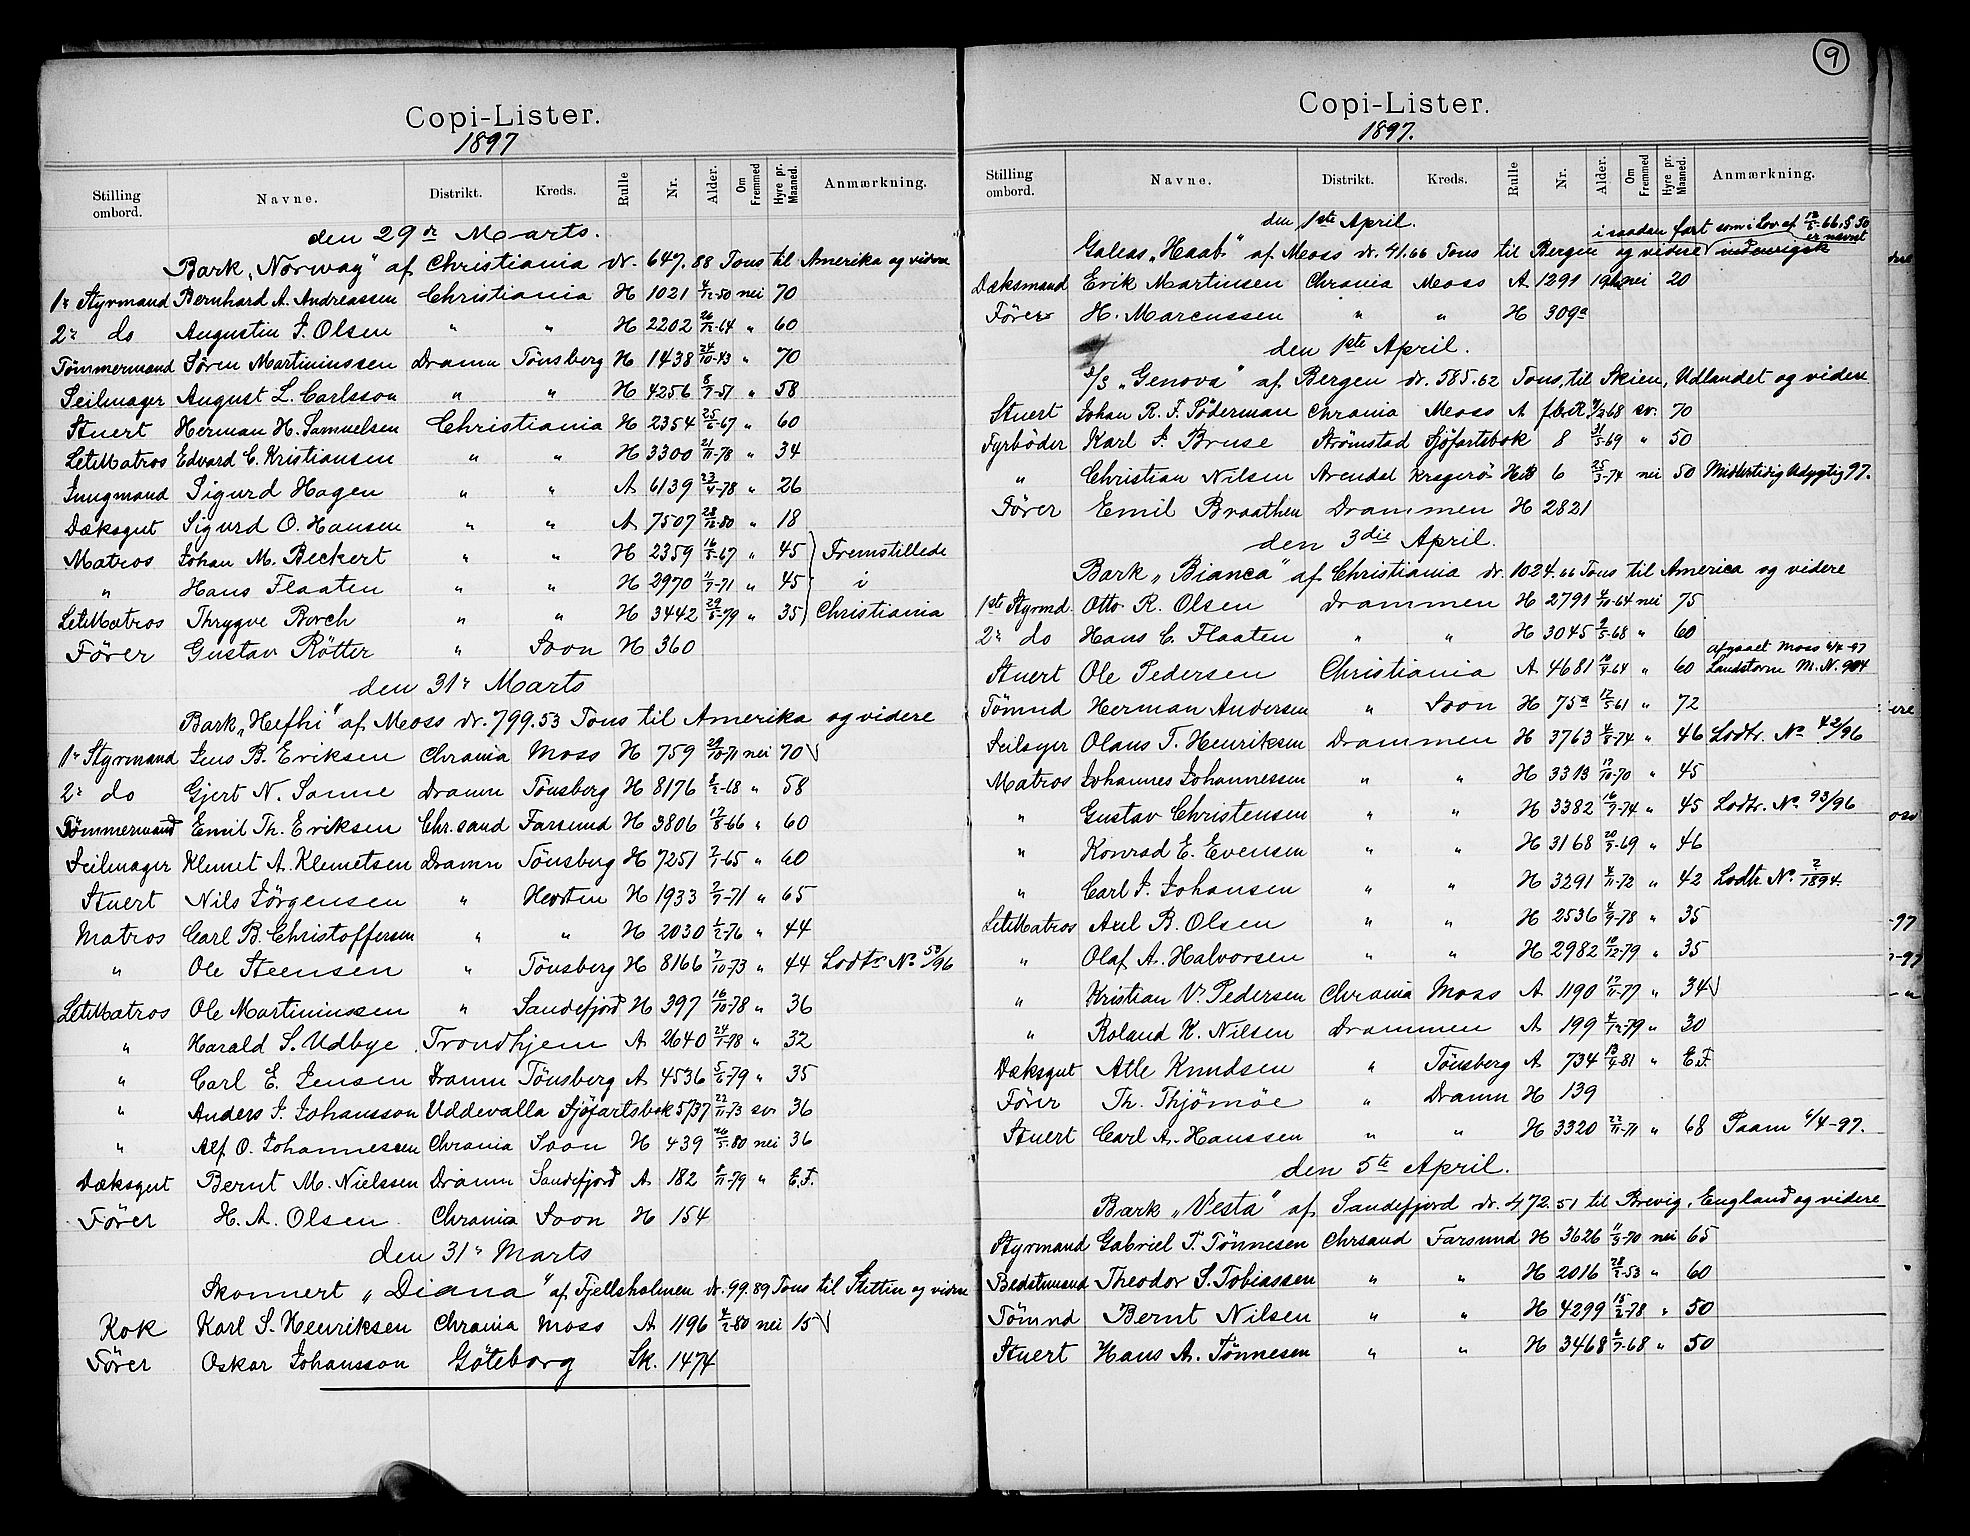 Copi-Lister.
1897
Stilling ombord. Navne. Distrikt. Kreds. Rulle Nr. Alder. Om Fremmed Hyre pr. Maaned. Anmærkning.
den 29de Marts.
Bark „Norway" af Christiania dr. 647.88 Tons til Amerika og videre
1ste Styrmand Bernhard A. Andreassen Christiania H 1021 4/12-50 nei 70
2den do Augustin J. Olsen " " H 2202 26/12-64 " 60
Tømmermand Sören Martiniussen Dramn Tönsberg H 1438 24/10-43 " 70
Seilmager August L. Carlsson " " H 4256 8/7-51 " 58
Stuert Herman H. Samuelsen Christiania H 2354 25/6-67 " 60
LetMatros Edvard C. Kristiansen " " H 3300 21/11-78 " 34
Jungmand Sigurd Hagen " " A 6139 23/4-78 " 26
Dæksgut Sigurd O. Hansen " " A 7507 28/12-80 " 18
Matros Johan M. Beckert " " H 2359 16/5-67 " 45 Fremstillede
" Hans Flaaten " " H 2970 11/7-71 " 45 i
LetMatros Thrygve Borch " " H 3442 29/5-79 " 35 Christiania
Förer Gustav Rötter " Soon H 360
den 31te Marts
Bark „Hefhi" af Moss dr. 799.53 Tons til Amerika og videre
1ste Styrmand Jens B. Eriksen Chrania Moss H 759 29/10-71 nei 70
2den do Gjert N. Sanne Dramn Tönsberg H 8176 8/2-68 " 58
Tømmermand Emil Th. Eriksen Chr.sand Farsund H 3806 17/8-66 " 60
Seilmager Klemet A. Klemetsen Dramn Tönsberg H 7251 7/1-65 " 60
Stuert Nils Jörgensen " Horten H 1933 7/7-71 " 65
Matros Carl B. Christoffersen " " H 2030 6/2-76 " 44
" Ole Steensen " Tönsberg H 8166 7/10-73 " 44 Lodtr. No 50/96
LetMatros Ole Martiniussen " Sandefjord H 397 16/10-78 " 36
" Harald S. Udbye Trondhjem A 2640 24/1-78 " 32
" Carl E. Jensen Dramn Tönsberg A 4536 5/6-79 " 35
" Anders J. Johansson Uddevalla Sjöfartsbok 5737 22/11-73 sv. 36
" Alf O. Johannesen Chrania Soon H 439 26/5-80 nei 36
Dæksgut Bernt M. Nielssen Dramn Sandefjord A 182 8/11-79 " E.F.
Förer H. A. Olsen Chrania Soon H 154
den 31te Marts
Skonnert „Diana" af Fjellsholmen dr. 99.89 Tons til Stettin og videre
Kok Karl S. Henriksen Chrania Moss A 1196 4/2-80 nei 15
Förer Oskar Johansson Göteborg Sk. 1474
9
Copi-Lister.
1897.
Stilling ombord. Navne. Distrikt. Kreds. Rulle Nr. Alder. Om Fremmed Hyre pr. Maaned. Anmærkning.
den 1ste April.
i saadan fart som i Lov af 12/5-66, § 50 er nævnt
Galeas „Haab" af Moss dr. 41.66 Tons til Bergen og videre indenrigsk
Dæksmand Erik Martinsen Chrania Moss A 1291 nei 20
Förer H. Marcussen " " H 309a
den 1ste April.
S/S „Genova" af Bergen dr. 585.62 Tons, til Skien, Udlandet og videre
Stuert Johan R. F. Söderman Chrania Moss A 7/3 68 sv. 70
Fyrböder Karl J. Bruse Strömstad Sjöfartsbok 8 31/5-69 " 50
" Christian Nilsen Arendal Kragerö 6 25/3-74 nei 50 Midlertidig Udygtig 97.
Förer Emil Braathen Drammen H 2821
den 3die April.
Bark „Bianca" af Christiania dr. 1024.66 Tons til America og videre
1ste Styrmd. Otto R. Olsen Drammen H 2791 4/10-64 nei 75
2den do Hans C. Flaaten " " H 3045 9/5-68 " 60
afgaaet Moss 6/4-97
Stuert Ole Pedersen Christiania A 4681 10/9-64 " 60 Landstorm M. N. 904
Tömnd Herman Andersen " Soon H 75a 12/5-61 " 72
Seilmger Olaus T. Henriksen Drammen H 3763 4/8-74 " 46 Lodtr. No 42/96
Matros Johannes Johannessen " " H 3313 17/10-70 " 45
" Gustav Christensen " " H 3382 16/9-74 " 45 Lodtr. No. 93/96
" Konrad E. Evensen " " H 3168 20/3-69 " 46
" Carl J. Johansen " " H 3291 4/11-72 " 42 Lodtr. No. 2/1894.
LetMatros Axel B. Olsen " " H 2536 4/9-78 " 35
" Olaf A. Halvorsen " " H 2982 10/12-79 " 35
" Kristian V. Pedersen Chrania Moss A 1190 17/11-77 " 34
" Roland K. Nilsen Drammen A 199 4/12-79 " 30
Dæksgut Atle Knudsen " Tönsberg A 734 13/4-81 " E.F.
Förer Th. Thjömöe " Dramn H 139
Stuert Carl A. Hanssen " " H 3320 22/11-71 " 68 Paam 6/4-97.
den 5te April.
Bark „Vesta" af Sandefjord dr. 472.51 til Brevig, England og videre
Styrmand Gabriel T. Tönnesen Chrsand Farsund H 3626 11/3-70 nei 65
Bedstmand Theodor S. Tobiassen " " H 2016 28/2-53 " 60
Tömnd Bernt Nilsen " " H 4299 15/2-78 " 50
Stuert Hans A. Tönnesen " " H 3468 6/7-68 " 50